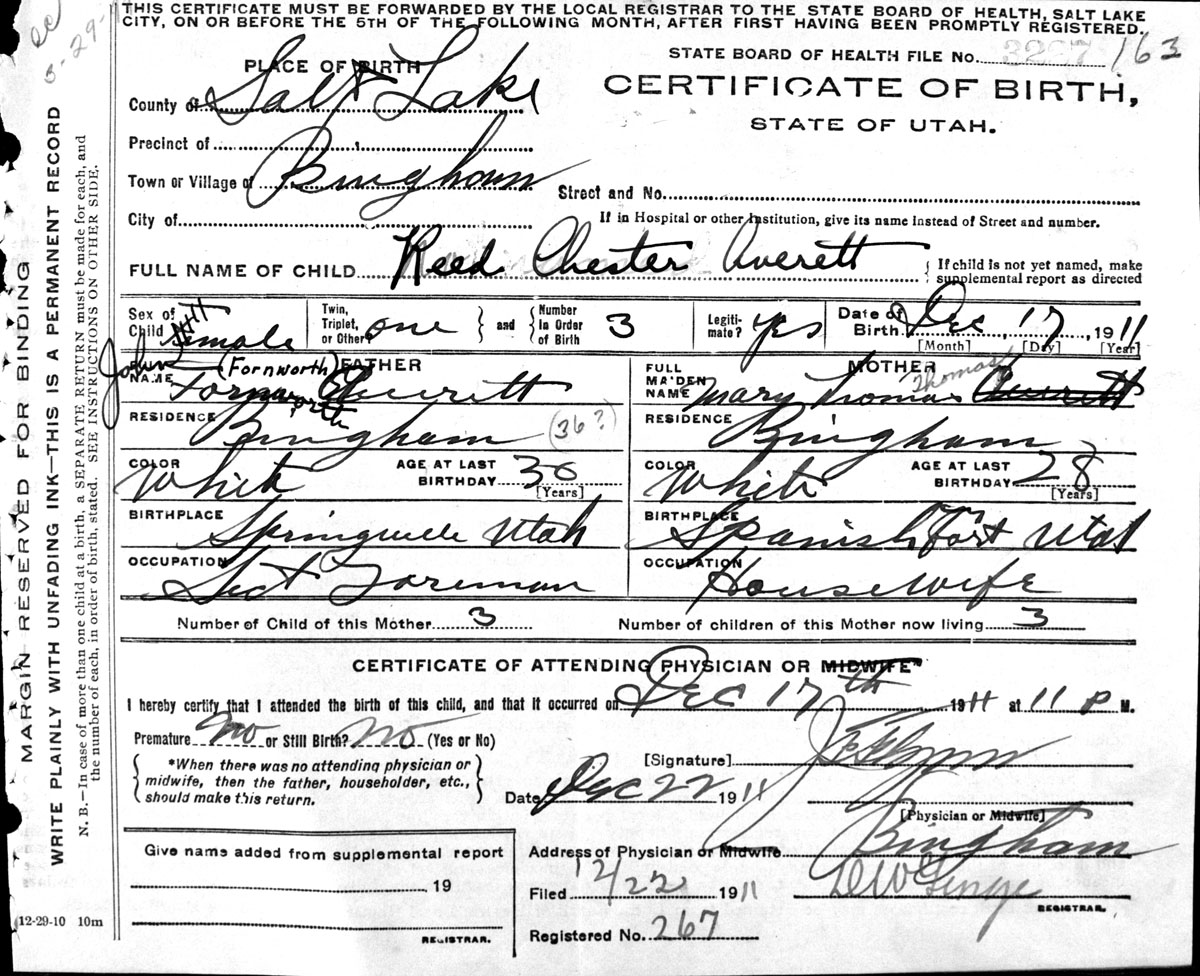 THIS CERTIFICATE MUST BE FORWARDED BY THE LOCAL REGISTRAR TO THE STATE BOARD OF HEALTH, SALT LAKE
CITY, ON OR BEFORE THE 5TH OF THE FOLLOWING MONTH, AFTER FIRST HAVING BEEN PROMPTLY REGISTERED.
STATE BOARD OF HEALTH FILE No. 163
PLACE OF BIRTH
CERTIFICATE OF BIRTH,
STATE OF UTAH.
County of Salt Lake
Precinct of
Town or Village of Bingham
Street and No.
City of
If in Hospital or other Institution, give its name instead of Street and number.
FULL NAME OF CHILD Reed Chester Averett
{ If child is not yet named, make supplemental report as directed
Sex of Child male
Twin, Triplet, or Other? one } and { Number in Order of Birth 3
Legiti-mate? yes
Date of Birth Dec 17, 1911
[Month] [Day] [Year]
FATHER
John (Fornworth)
NAME Averett
RESIDENCE Bingham (36?)
COLOR White
AGE AT LAST BIRTHDAY 30
[Years]
BIRTHPLACE Springville Utah
OCCUPATION Sect Foreman
MOTHER
FULL MAIDEN NAME Mary Thomas Thomas Averett
RESIDENCE Bingham
COLOR White
AGE AT LAST BIRTHDAY 28
[Years]
BIRTHPLACE Spanish Fork Utah
OCCUPATION Housewife
Number of Child of this Mother 3
Number of children of this Mother now living 3
CERTIFICATE OF ATTENDING PHYSICIAN OR MIDWIFE*
I hereby certify that I attended the birth of this child, and that it occurred on Dec 17th 1911 at 11 P M.
Premature no or Still Birth? no (Yes or No)
{ *When there was no attending physician or
midwife, then the father, householder, etc.,
should make this return. }
[Signature]
Date Dec 22 1911
[Physician or Midwife]
Address of Physician or Midwife Bingham
Give name added from supplemental report
19
REGISTRAR.
Filed 12/22 1911
REGISTRAR.
Registered No. 267
(12-29-10 10m
MARGIN RESERVED FOR BINDING
WRITE PLAINLY WITH UNFADING INK—THIS IS A PERMANENT RECORD
N. B.—In case of more than one child at a birth, a SEPARATE RETURN must be made for each, and
the number of each, in order of birth, stated. SEE INSTRUCTIONS ON OTHER SIDE.